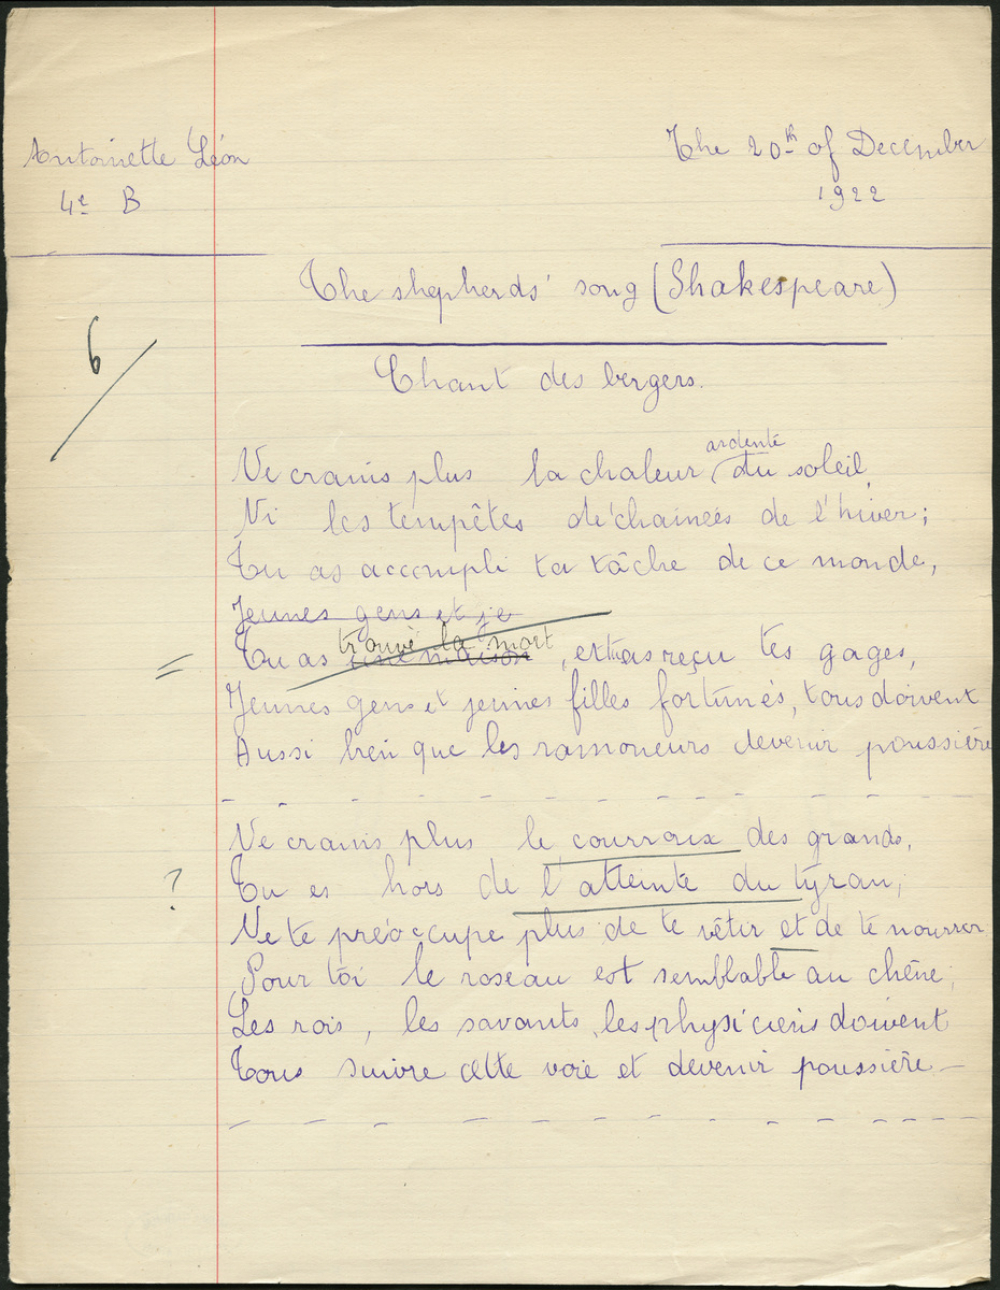 Antoinette Léon
The 20th of December
4e B
1922
The shepherds' song (Shakespeare)
6
Chant des bergers.
ardente
Ne crains plus la chaleur du soleil,
Ni les tempêtes déchainées de l'hiver;
Tu as accompli ta tâche de ce monde,
Jeunes gens et je
trouvé la mort
= Tu as une maison, et as reçu tes gages,
Jeunes gens et jeunes filles fortunés, tous doivent
Aussi bien que les ramoneurs devenir poussière
Ne crains plus le courroux des grands,
? Tu es hors de l'atteinte du tyran;
Ne te préoccupe plus de te vêtir et de te nourrir
Pour toi le roseau est semblable au chêne;
Les rois, les savants, les physiciens doivent
Tous suivre cette voie et devenir poussière -